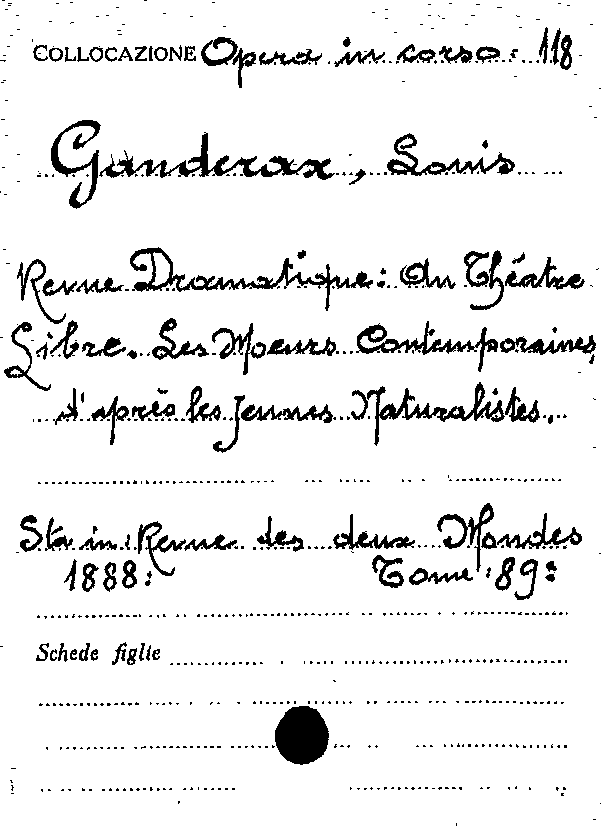 COLLOCAZIONE Opera in corso: 118
Ganderax, Louis
Revue Dramatique: Au Théatre
Libre. Les Moeurs Contemporaines,
d'après les Jeunes Naturalistes.
Sta in: Revue des deux Mondes
1888: Tome: 89:
Schede figlie